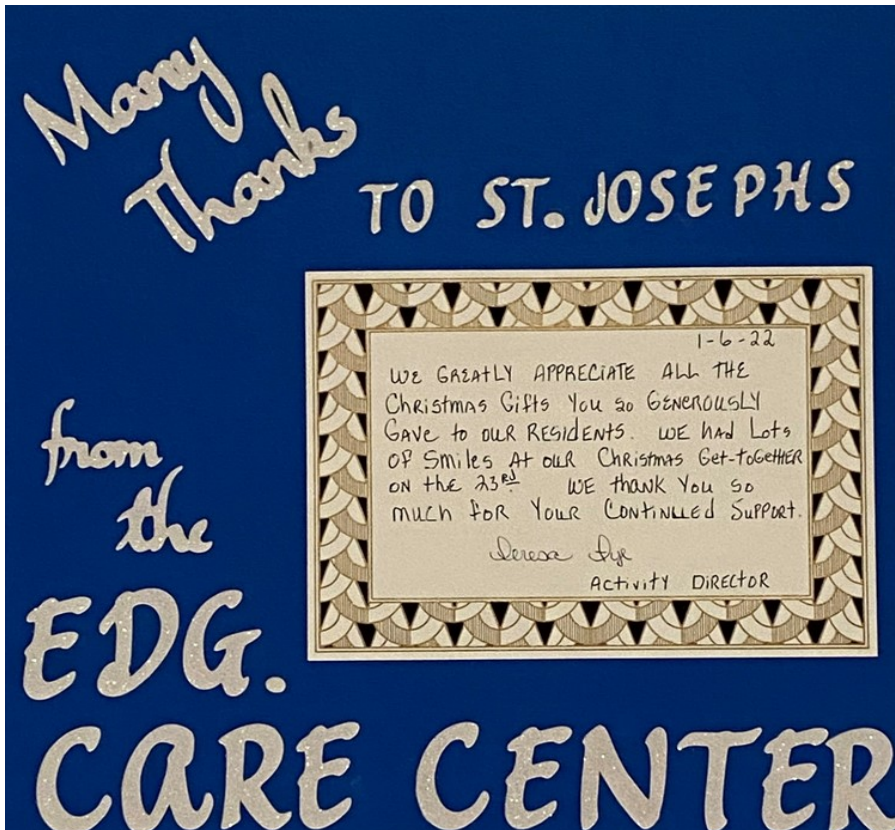 Many
Thanks
TO ST. JOSEPHS
1-6-22
WE GREATLY APPRECIATE ALL THE
Christmas Gifts You so GENEROUSLY
GAVE to OUR RESIDENTS. WE HAD Lots
OF Smiles At OUR Christmas Get-toGetHER
ON the 23RD. WE thANK You so
much foR YouR CONtINUEd SuPPoRt.
Teresa Dye
Activity DiRECtoR
from
the
EDG.
CARE CENTER